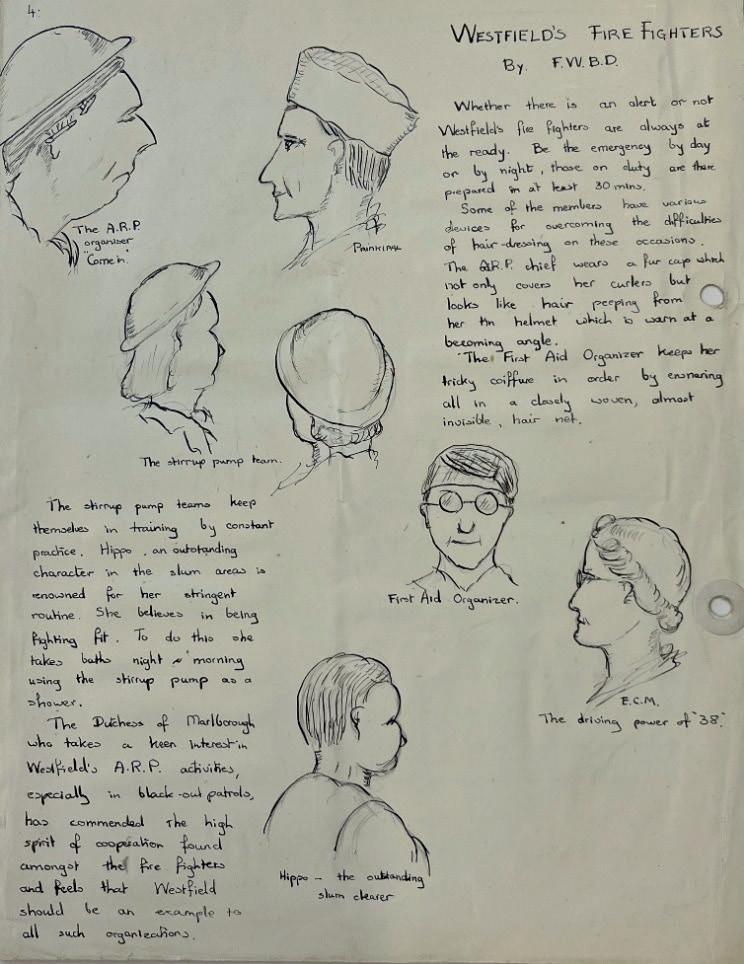 4.
WESTFIELD'S FIRE FIGHTERS
By. F.W.B.D.
Whether there is an alert or not
Westfield's fire fighters are always at
the ready. Be the emergency by day
or by night, those on duty are there
prepared in at least 30 mins.
Some of the members have various
devices for overcoming the difficulties
of hair-dressing on these occasions.
The A.R.P. chief wears a fur cap which
not only covers her curlers but
looks like hair peeping from
her tin helmet which is warn at a
becoming angle.
The First Aid Organizer keeps her
tricky coiffure in order by ensnaring
all in a closely woven, almost
invisible, hair net.
The A.R.P.
organiser
"Come in".
The stirrup pump team.
The stirrup pump teams keep
themselves in training by constant
practice. Hippo, an outstanding
character in the slum areas is
renowned for her stringent
routine. She believes in being
fighting fit. To do this she
takes baths night & morning
using the stirrup pump as a
shower.
The Dutchess of Marlborough
who takes a keen interest in
Westfield's A.R.P. activities,
especially in black-out patrols,
has commended the high
spirit of cooperation found
amongst the fire fighters
and feels that Westfield
should be an example to
all such organizations.
First Aid Organizer.
E.C.M.
The driving power of "38".
Hippo – the outstanding
slum clearer